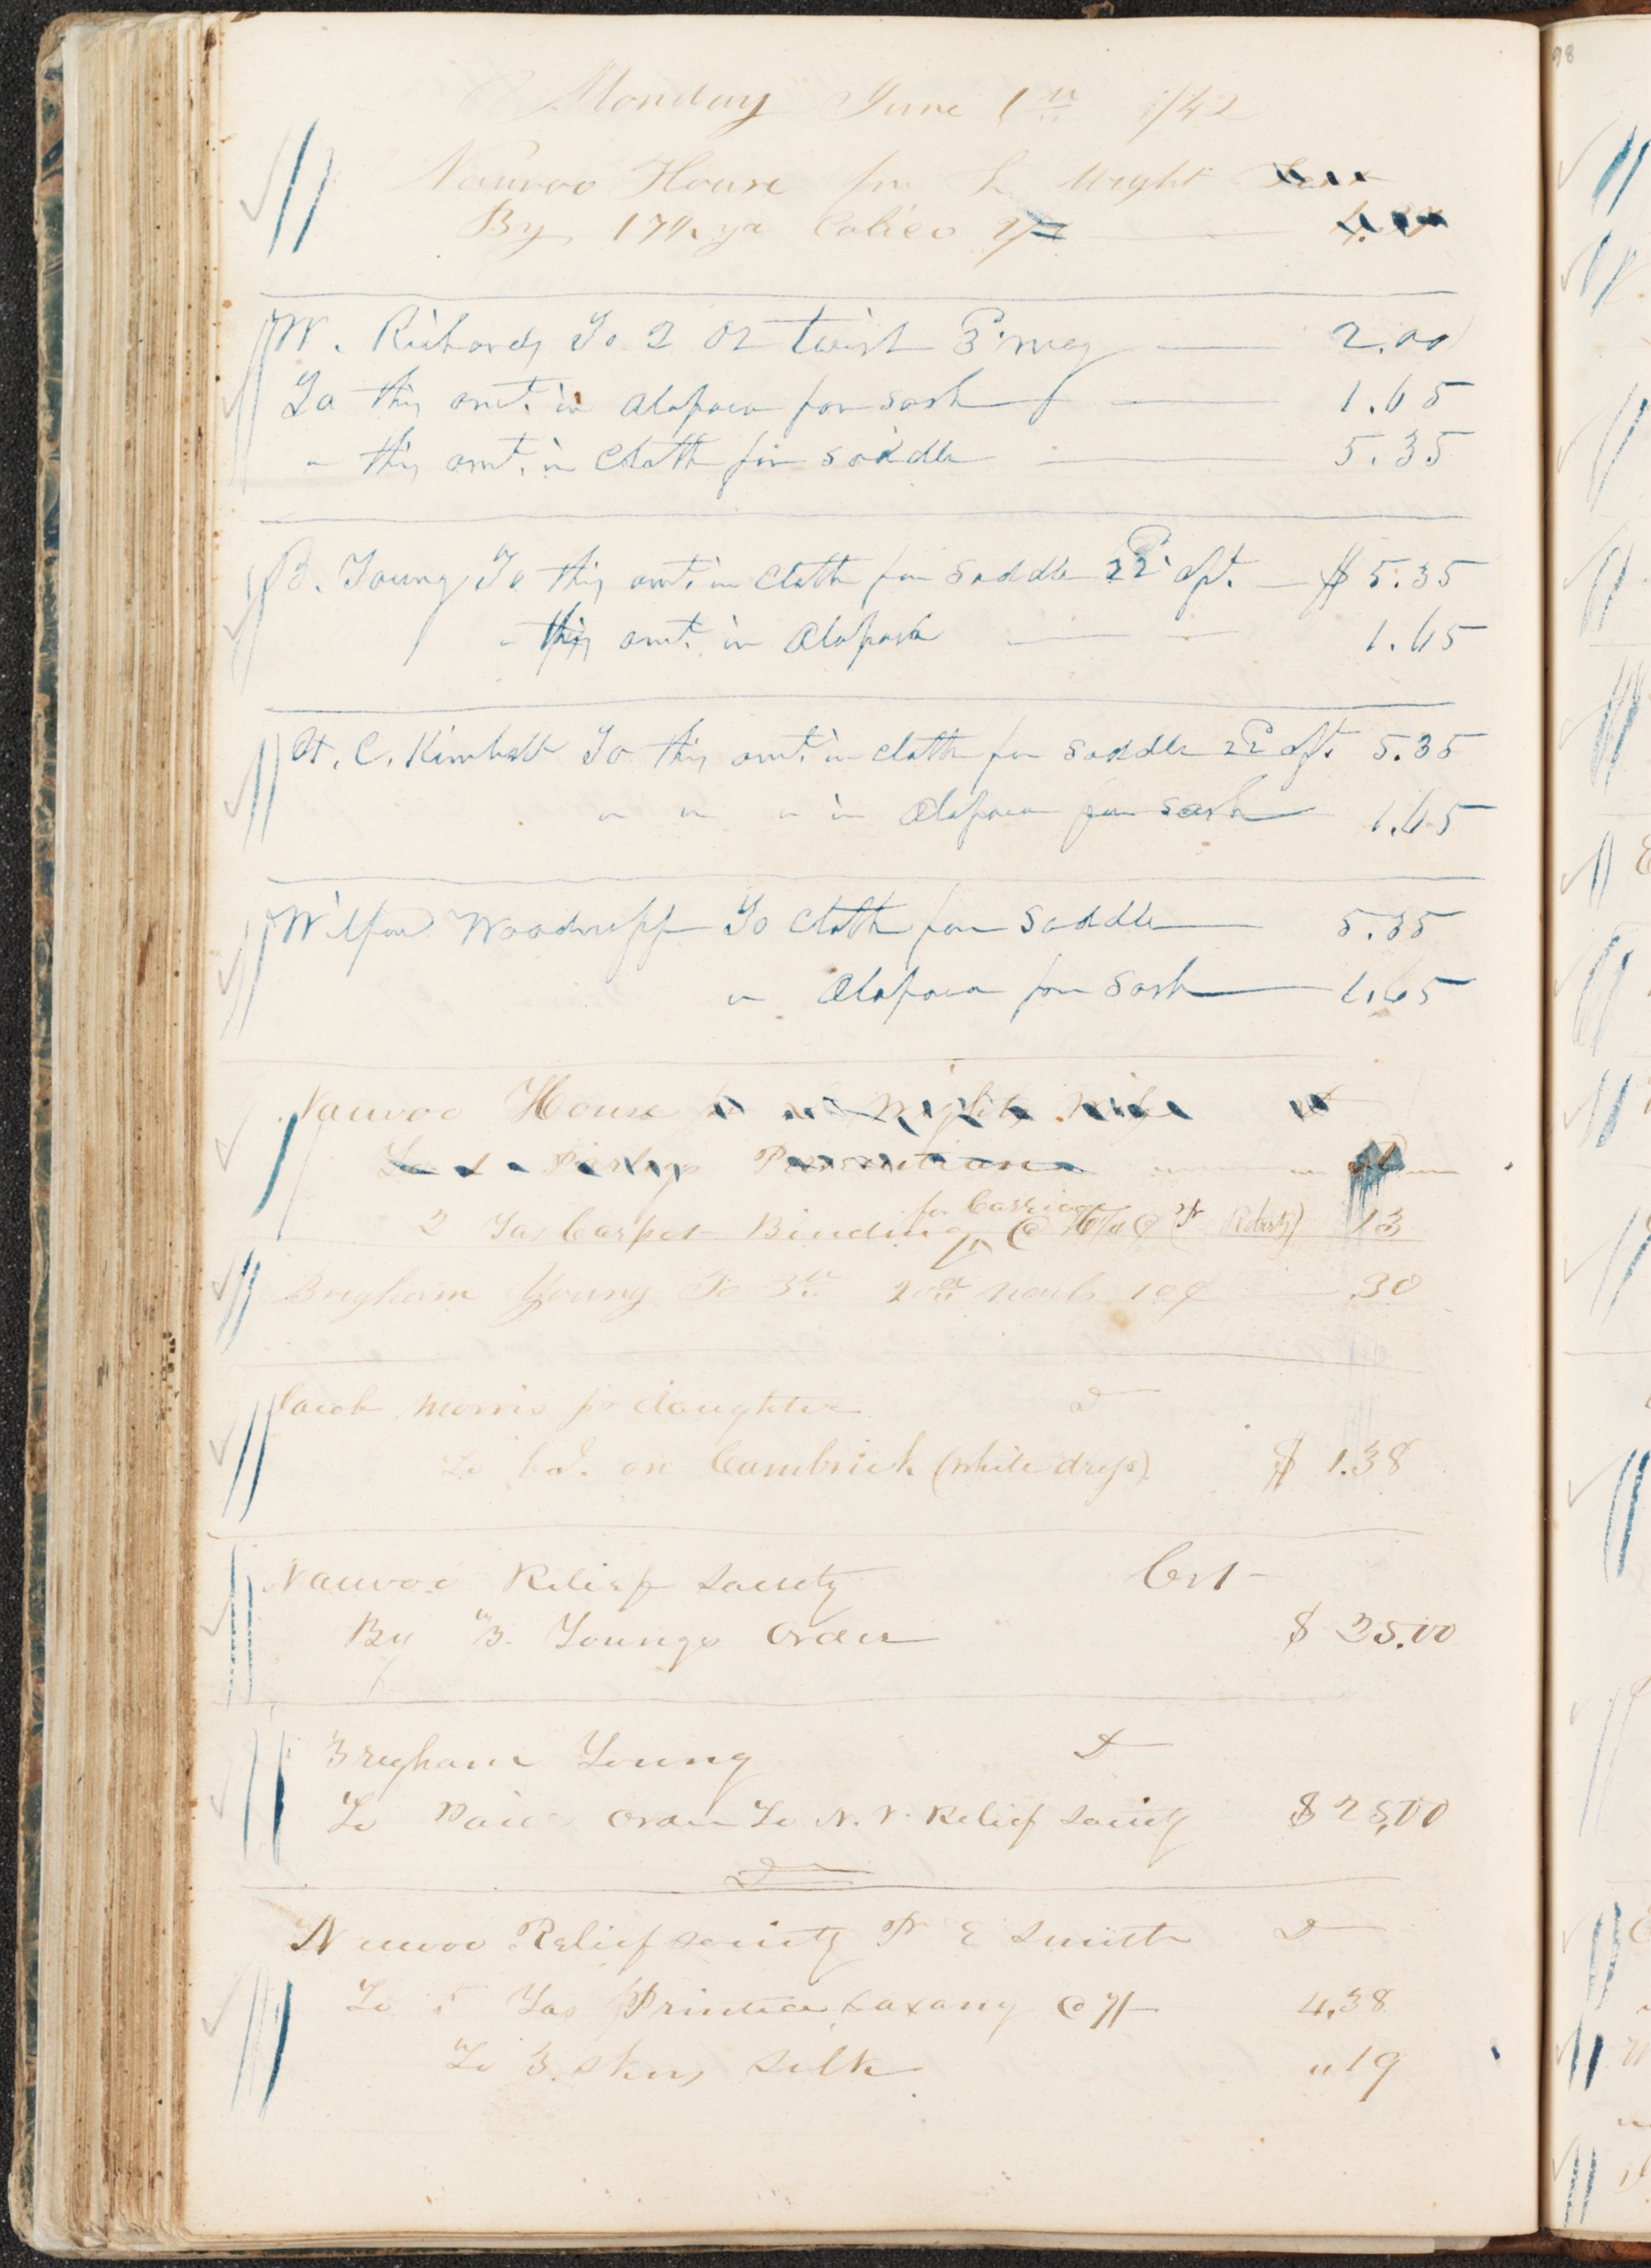 Monday June 1842
Nauvoo House for L Wight
By 17 1/2 yd Calico
W. Richards To 2 oz twist
2.00
To this amt. in Alapaca for sash
1.65
" this amt. in Cloth for saddle
5.35
B. Young To this amt. in cloth for saddle
$ 5.35
" this amt. in Alapaca
1.65
H. C. Kimball To this amt. in cloth for saddle
5.35
" " " in Alapaca for sash
1.65
Wilford Woodruff To Cloth for Saddle
5.35
" Alapaca for Sash
1.65
Nauvoo House
for Carriage
2 Yds Carpet Binding @
13
Brigham Young To 3 20 Nails 10¢
.30
Jacob Morris pr daughter D
To bal. on Cambrick (white dress)
$ 1.38
Nauvoo Relief Society Crt
By B. Youngs Order
$ 25.00
Brigham Young D
To Paid order To N. Relief Society
$ 25,00
Nauvoo Relief Society Pr E Smith D
To 5 Yds Printed Saxany @ 7/-
4.38
To 3. Skns Silk
" 19
98